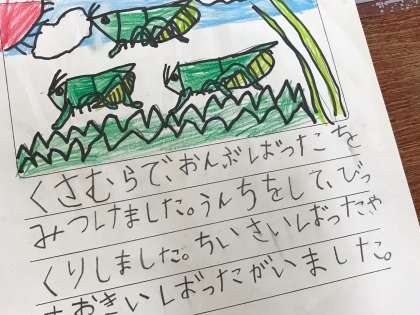 くさむらで、おんぶばったを
みつけました。うんちをして、びっ
くりしました。ちいさいばったや
おおきいばったがいました。